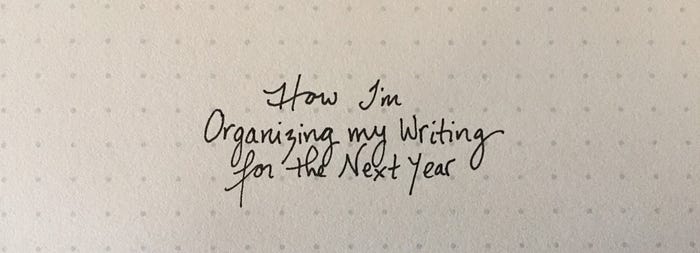 How I'm
Organizing my Writing
for the Next Year